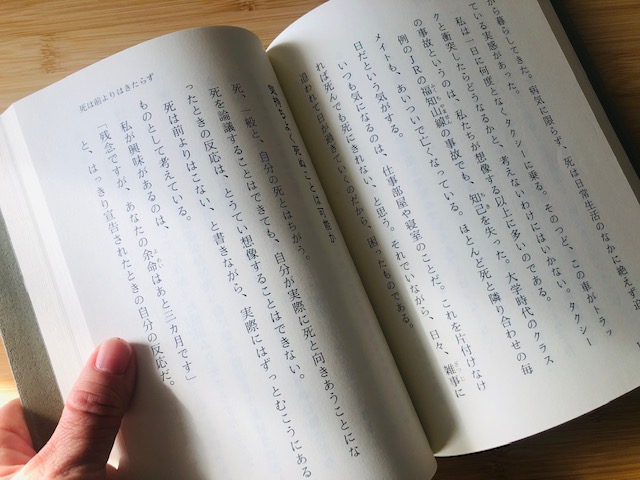 から暮らしてきた。病気に限らず、死は日常生活のなかに絶えず
ている実感があった。
私は一日に何度となくタクシーに乗る。そのつど、この車がトラッ
クと衝突したらどうなるかと、考えないわけにはいかない。タクシー
の事故というのは、私たちが想像する以上に多いのである。
例のJRの福知山線の事故でも、知己を失った。大学時代のクラス
メイトも、あいついで亡くなっている。ほとんど死と隣り合わせの毎
日だという気がする。
いつも気になるのは、仕事部屋や寝室のことだ。これを片付けなけ
れば死んでも死にきれない、と思う。それでいながら、日々、雑事に
追われて日が過ぎていくのだから、困ったものである。
気持ちよく死ぬことは可能か
死、一般と、自分の死とはちがう。
死を論議することはできても、自分が実際に死と向きあうことにな
ったときの反応は、とうてい想像することはできない。
死は前よりはこない、と書きながら、実際にはずっとむこうにある
ものとして考えている。
私が興味があるのは、
「残念ですが、あなたの余命はあと三カ月です」
と、はっきり宣告されたときの自分の反応だ。
死は前よりはきたらず